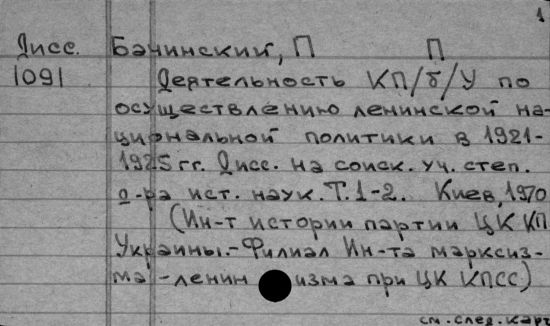 1
Дисс. Бачинский, П П
1091 Деятельность КП/б/У по
осуществлению ленинской на-
циональной политики в 1921-
1925 гг. Дисс. на соиск. уч. степ.
д-ра ист. наук. Т. 1-2. Киев, 1970
(Ин-т истории партии ЦК КП
Украины.-Филиал Ин-та марксиз-
ма-ленинизма при ЦК КПСС)
см. след. карт